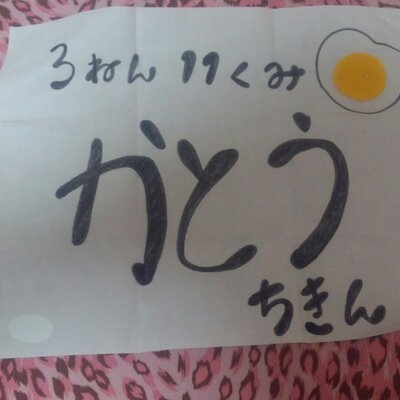 3ねん11くみ
かとう
ちきん